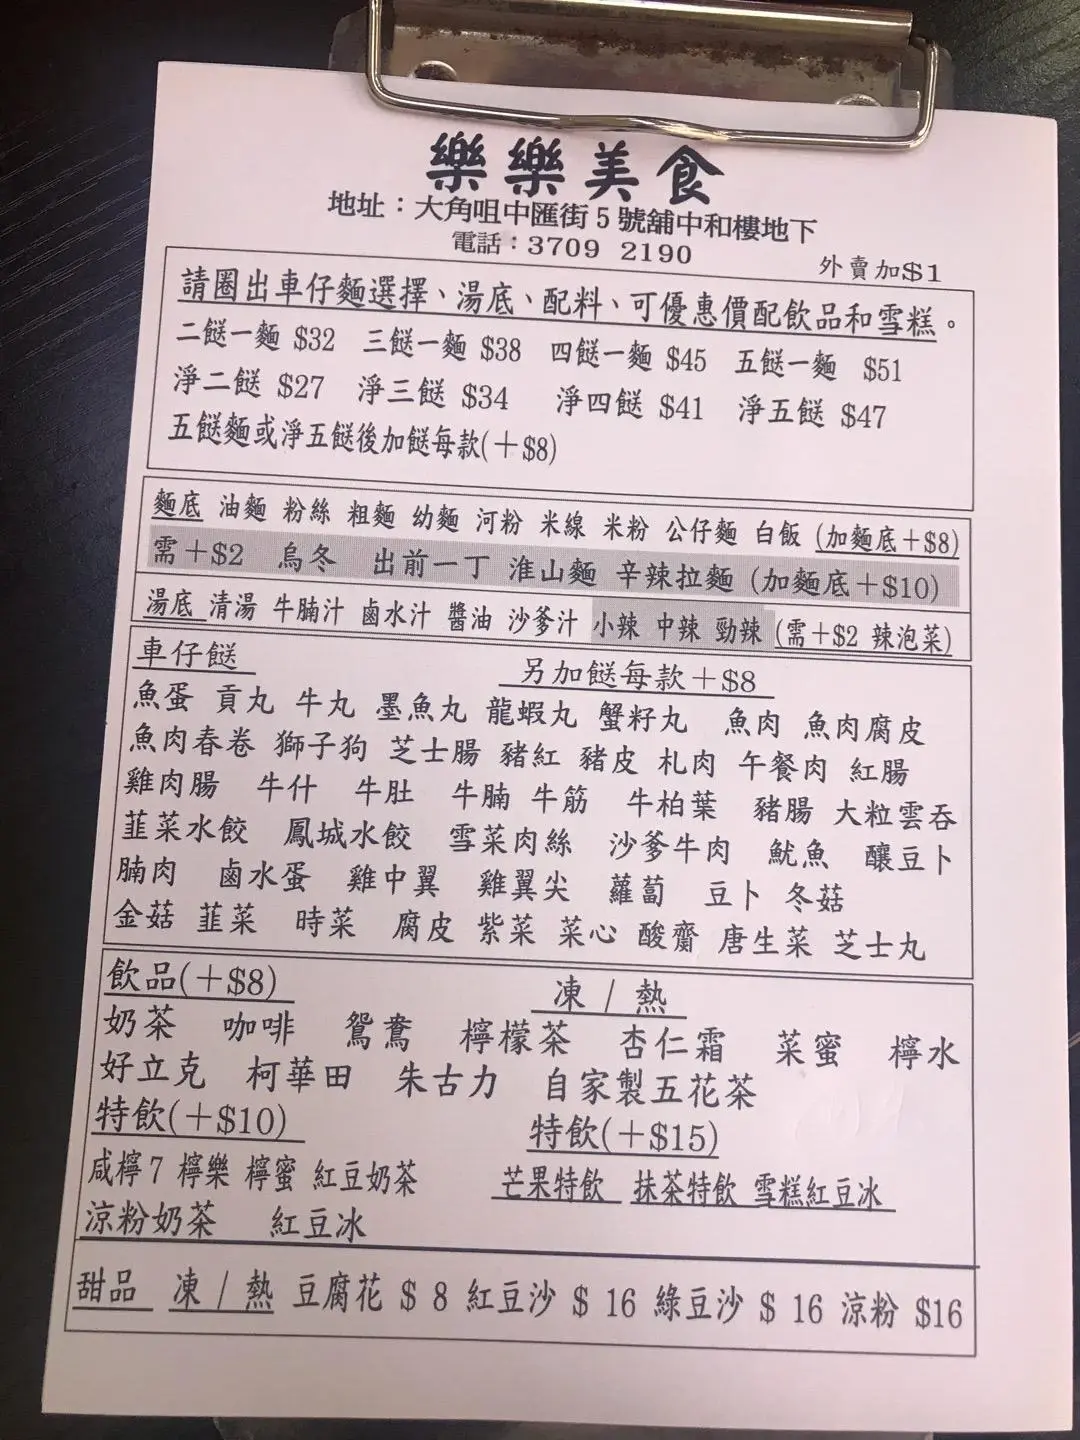 樂樂美食
地址：大角咀中匯街 5 號舖中和樓地下
電話：3709 2190
外賣加$1
請圈出車仔麵選擇、湯底、配料、可優惠價配飲品和雪糕。
二餸一麵 $32 三餸一麵 $38 四餸一麵 $45 五餸一麵 $51
淨二餸 $27 淨三餸 $34 淨四餸 $41 淨五餸 $47
五餸麵或淨五餸後加餸每款(＋$8)
麵底 油麵 粉絲 粗麵 幼麵 河粉 米線 米粉 公仔麵 白飯 (加麵底＋$8)
需＋$2 烏冬 出前一丁 淮山麵 辛辣拉麵 (加麵底＋$10)
湯底 清湯 牛腩汁 鹵水汁 醬油 沙爹汁 小辣 中辣 勁辣 (需＋$2 辣泡菜)
車仔餸 另加餸每款＋$8
魚蛋 貢丸 牛丸 墨魚丸 龍蝦丸 蟹籽丸 魚肉 魚肉腐皮
魚肉春卷 獅子狗 芝士腸 豬紅 豬皮 札肉 午餐肉 紅腸
雞肉腸 牛什 牛肚 牛腩 牛筋 牛柏葉 豬腸 大粒雲吞
韮菜水餃 鳳城水餃 雪菜肉絲 沙爹牛肉 魷魚 釀豆卜
腩肉 鹵水蛋 雞中翼 雞翼尖 蘿蔔 豆卜 冬菇
金菇 韮菜 時菜 腐皮 紫菜 菜心 酸齋 唐生菜 芝士丸
飲品(＋$8) 凍 / 熱
奶茶 咖啡 鴛鴦 檸檬茶 杏仁霜 菜蜜 檸水
好立克 柯華田 朱古力 自家製五花茶
特飲(＋$10) 特飲(＋$15)
咸檸7 檸樂 檸蜜 紅豆奶茶 芒果特飲 抹茶特飲 雪糕紅豆冰
涼粉奶茶 紅豆冰
甜品 凍 / 熱 豆腐花 $ 8 紅豆沙 $ 16 綠豆沙 $ 16 涼粉 $16